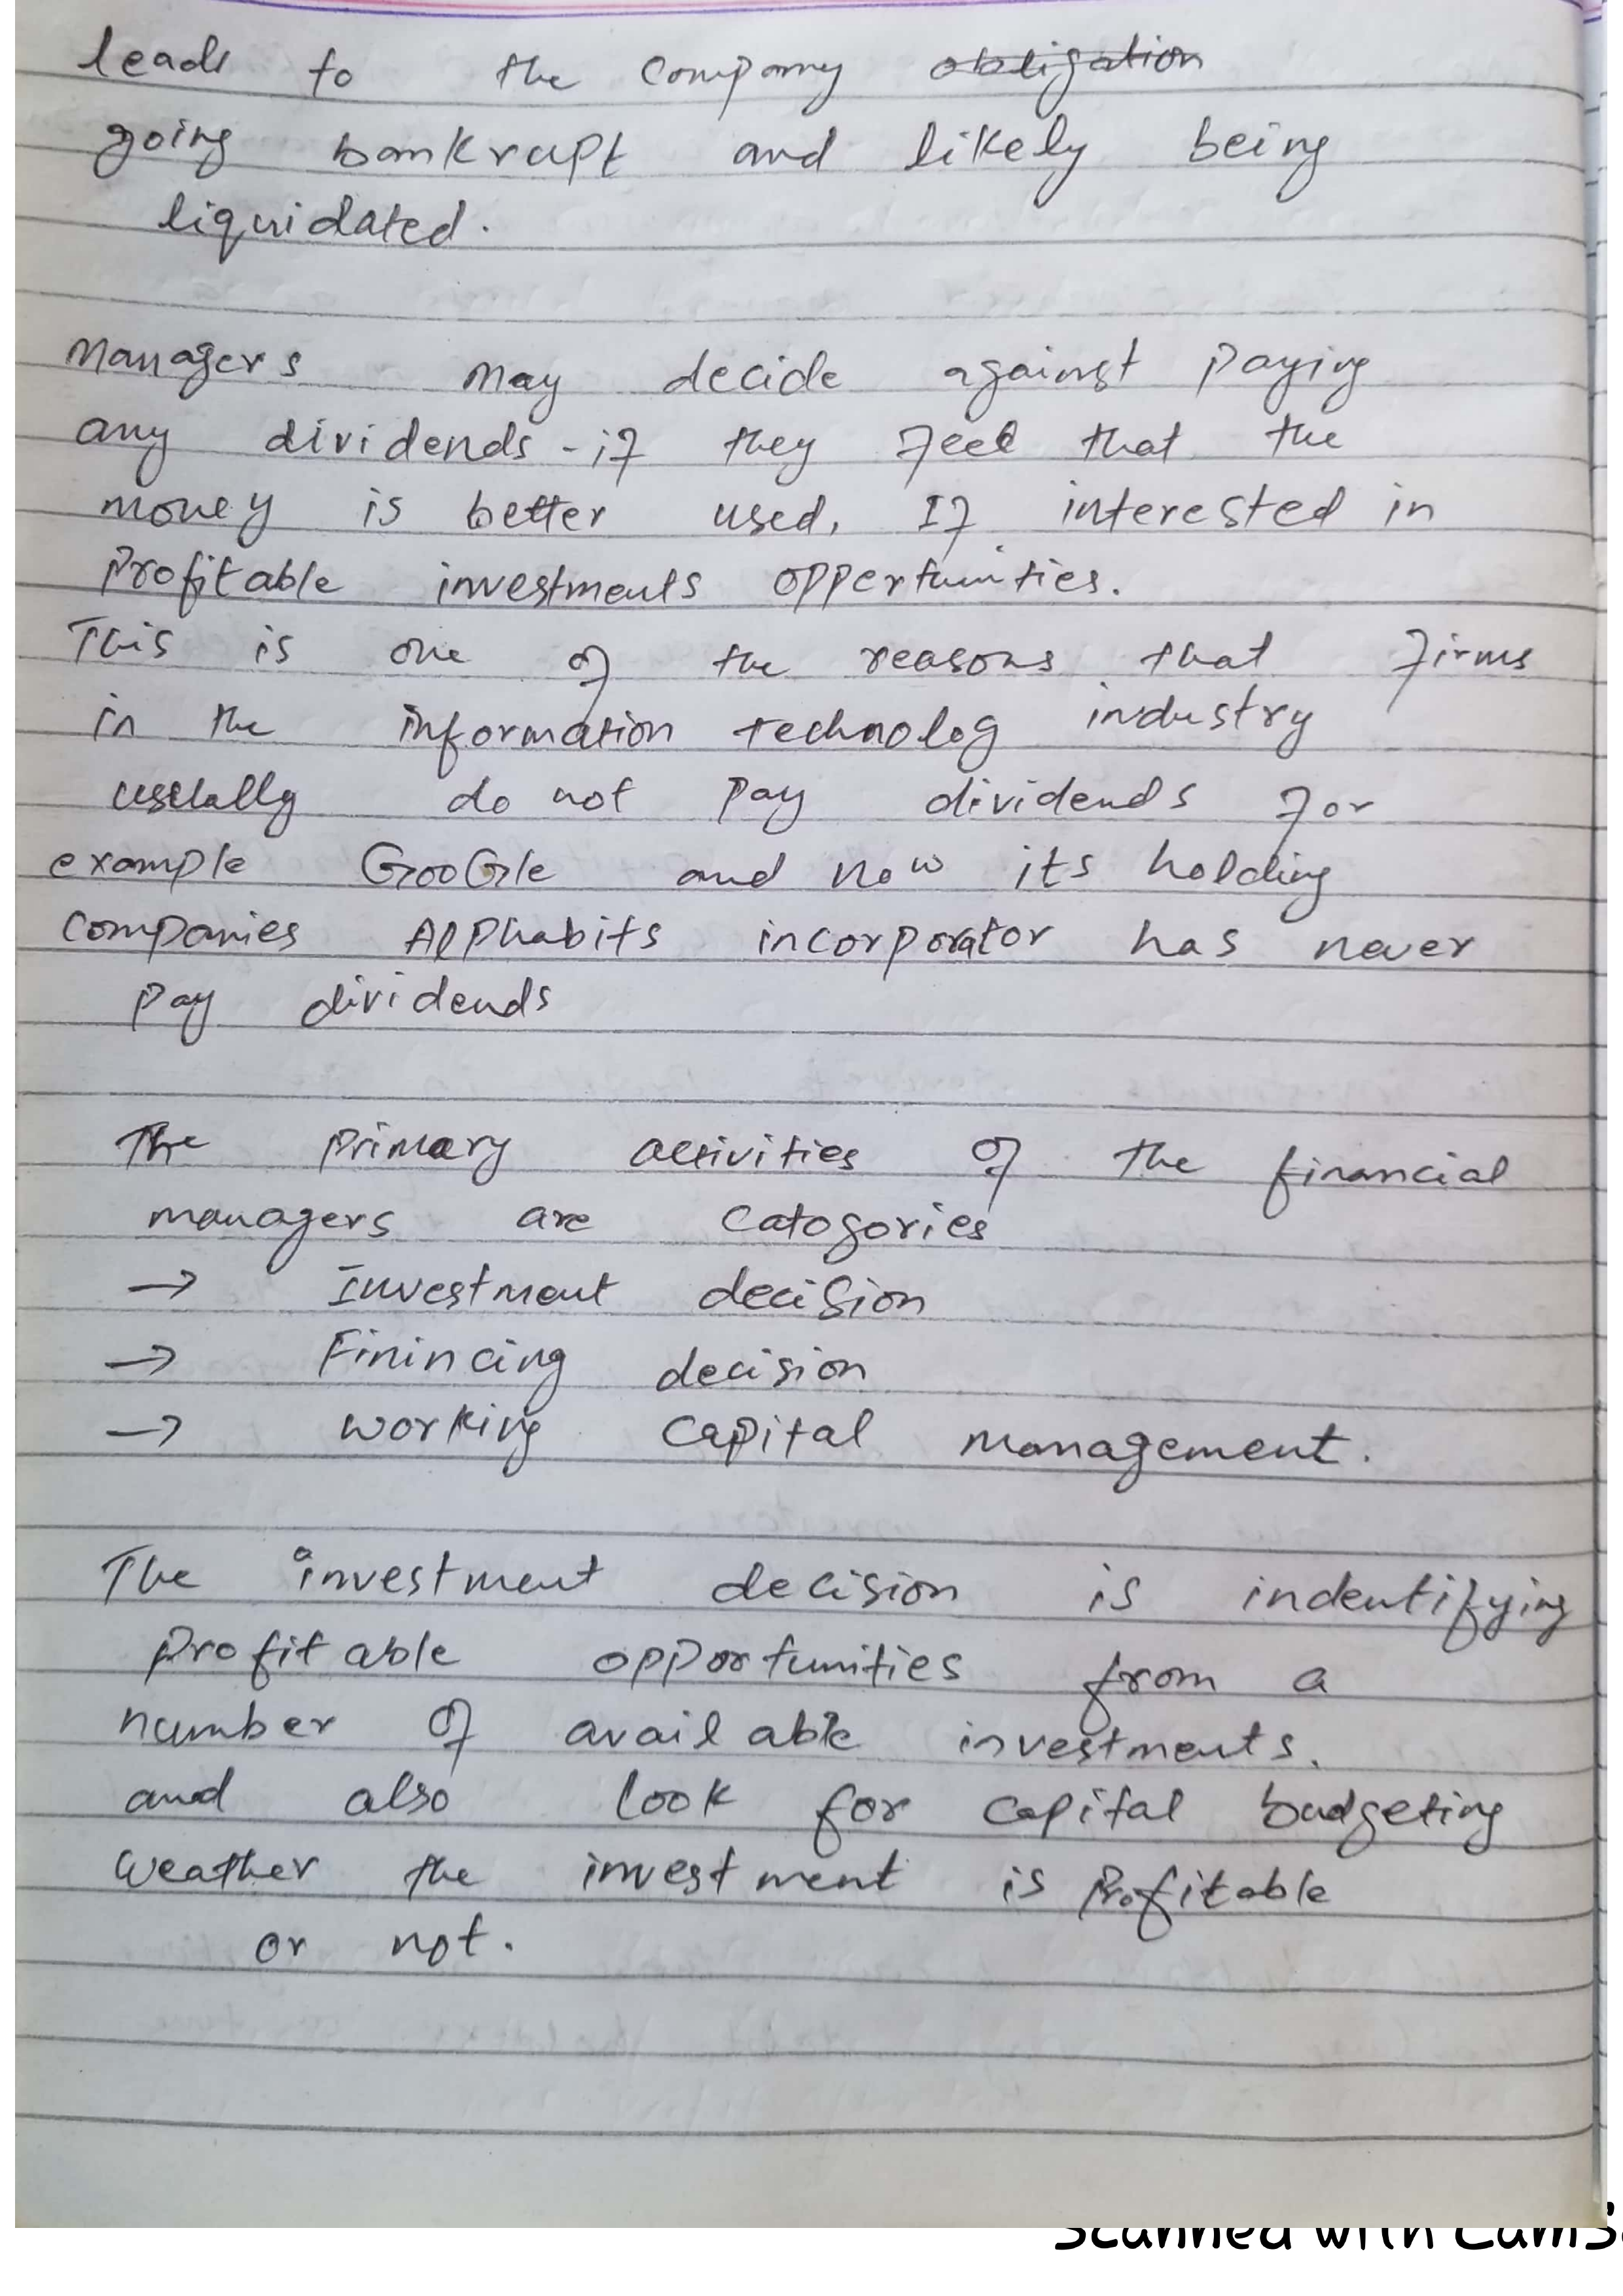 leads to the company obligation
going bankrupt and likely being
liquidated.
Managers may decide against paying
any dividends - if they feel that the
money is better used, If interested in
Profitable investments oppertunities.
This is one of the reasons that firms
in the information technolog industry
usually do not pay dividends for
example GooGle and now its holding
companies Alphabits incorporator has never
pay dividends
The primary activities of the financial
managers are catogories
→ Investment decision
→ Finincing decision
→ working capital management.
The investment decision is indentifying
profitable opportunities from a
number of available investments.
and also look for capital budgeting
weather the investment is Profitable
or not.
Scanned with CamS